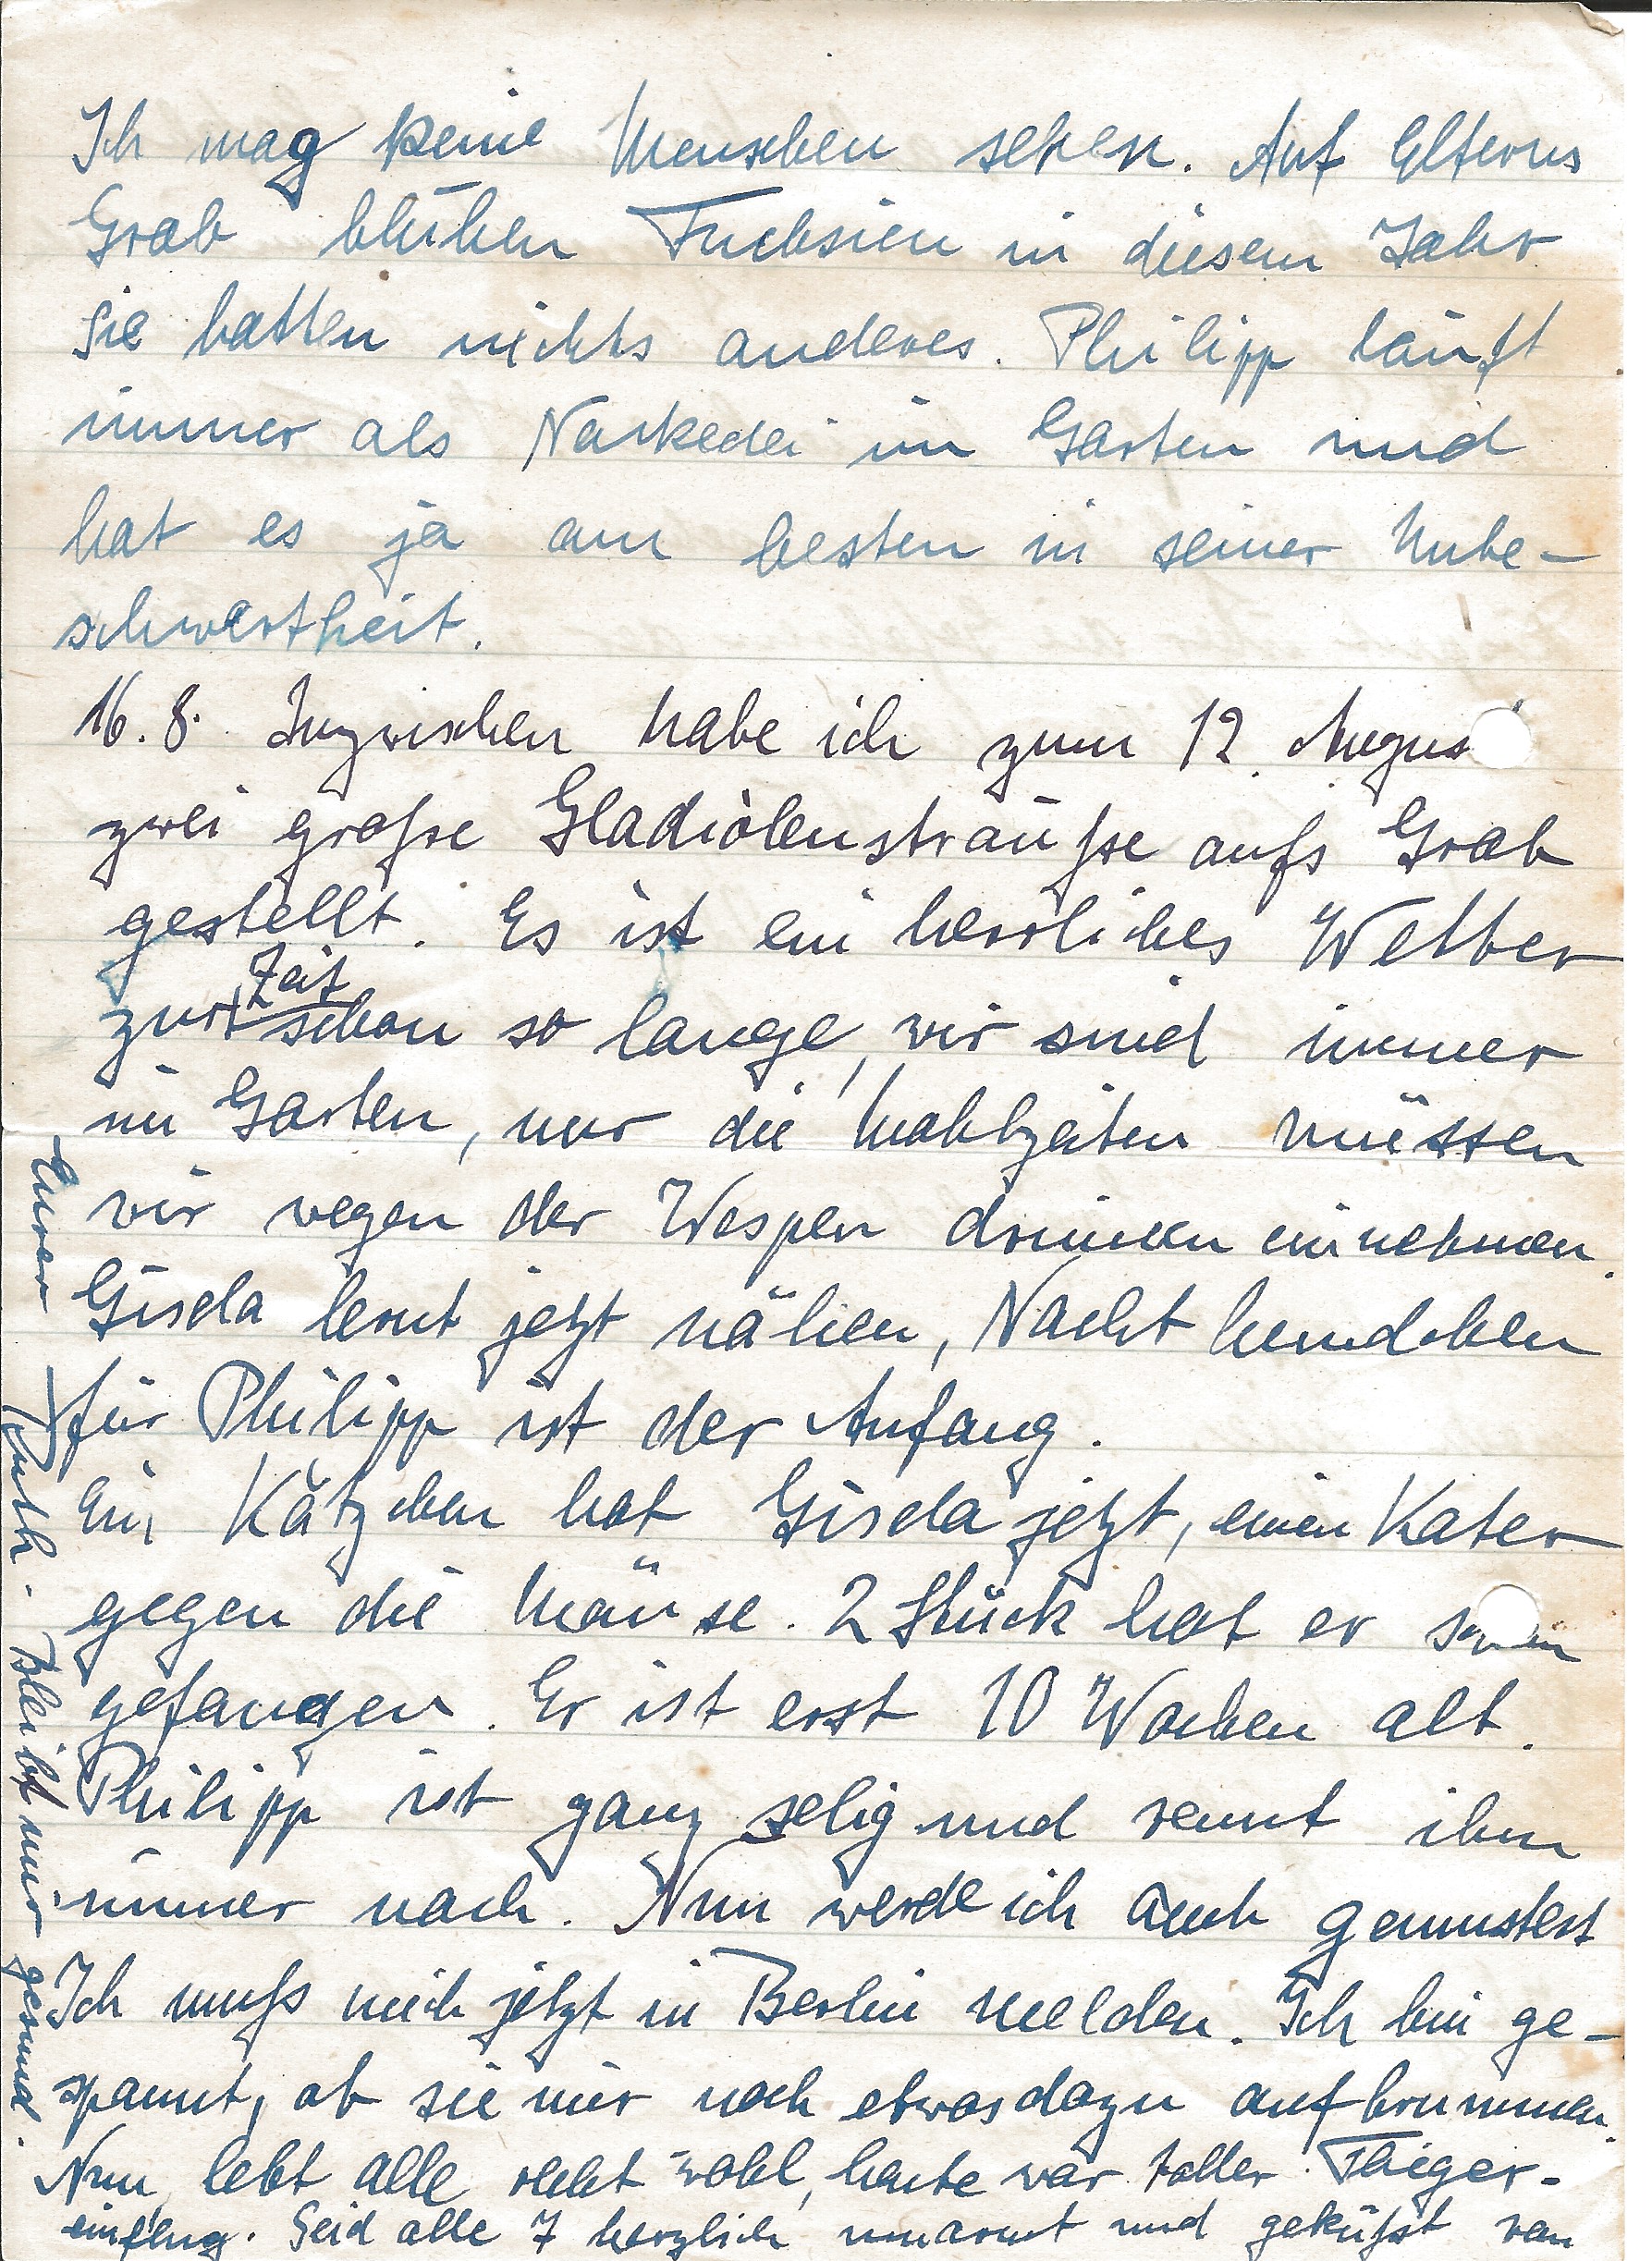 Ich mag keine Menschen sehen. Auf Elterns
Grab blühen Fuchsien in diesem Jahr
sie hatten nichts anderes. Philipp läuft
immer als Nackedei im Garten und
hat es ja am besten in seiner Unbe-
schwertheit.
16.8. Inzwischen habe ich zum 12. Augus
zwei große Gladiolensträuße aufs Grab
gestellt. Es ist ein herrliches Wetter
zur Zeit
schon so lange, wir sind immer
im Garten, nur die Mahlzeiten müssen
wir wegen der Wespen drinnen einnehmen.
Gisela lernt jetzt nähen, Nachthemdchen
für Philipp ist der Anfang.
Ein Kätzchen hat Gisela jetzt, einen Kater
gegen die Mäuse. 2 Stück hat er
gefangen. Er ist erst 10 Wochen alt.
Philipp ist ganz selig und rennt ihm
immer nach. Nun werde ich auch gemustert
Ich muß mich jetzt in Berlin melden. Ich bin ge-
spannt, ob sie mir noch etwas dazu aufbrummen.
Nun lebt alle recht wohl, heute war toller Flieger-
einflug. Seid alle 7 herzlich umarmt und geküßt von
Eurer Ruth. Bleibt nur gesund.